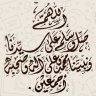 اللهم
صل وسلم على سيدنا
ونبينا محمد وعلى آله وصحبه
أجمعين